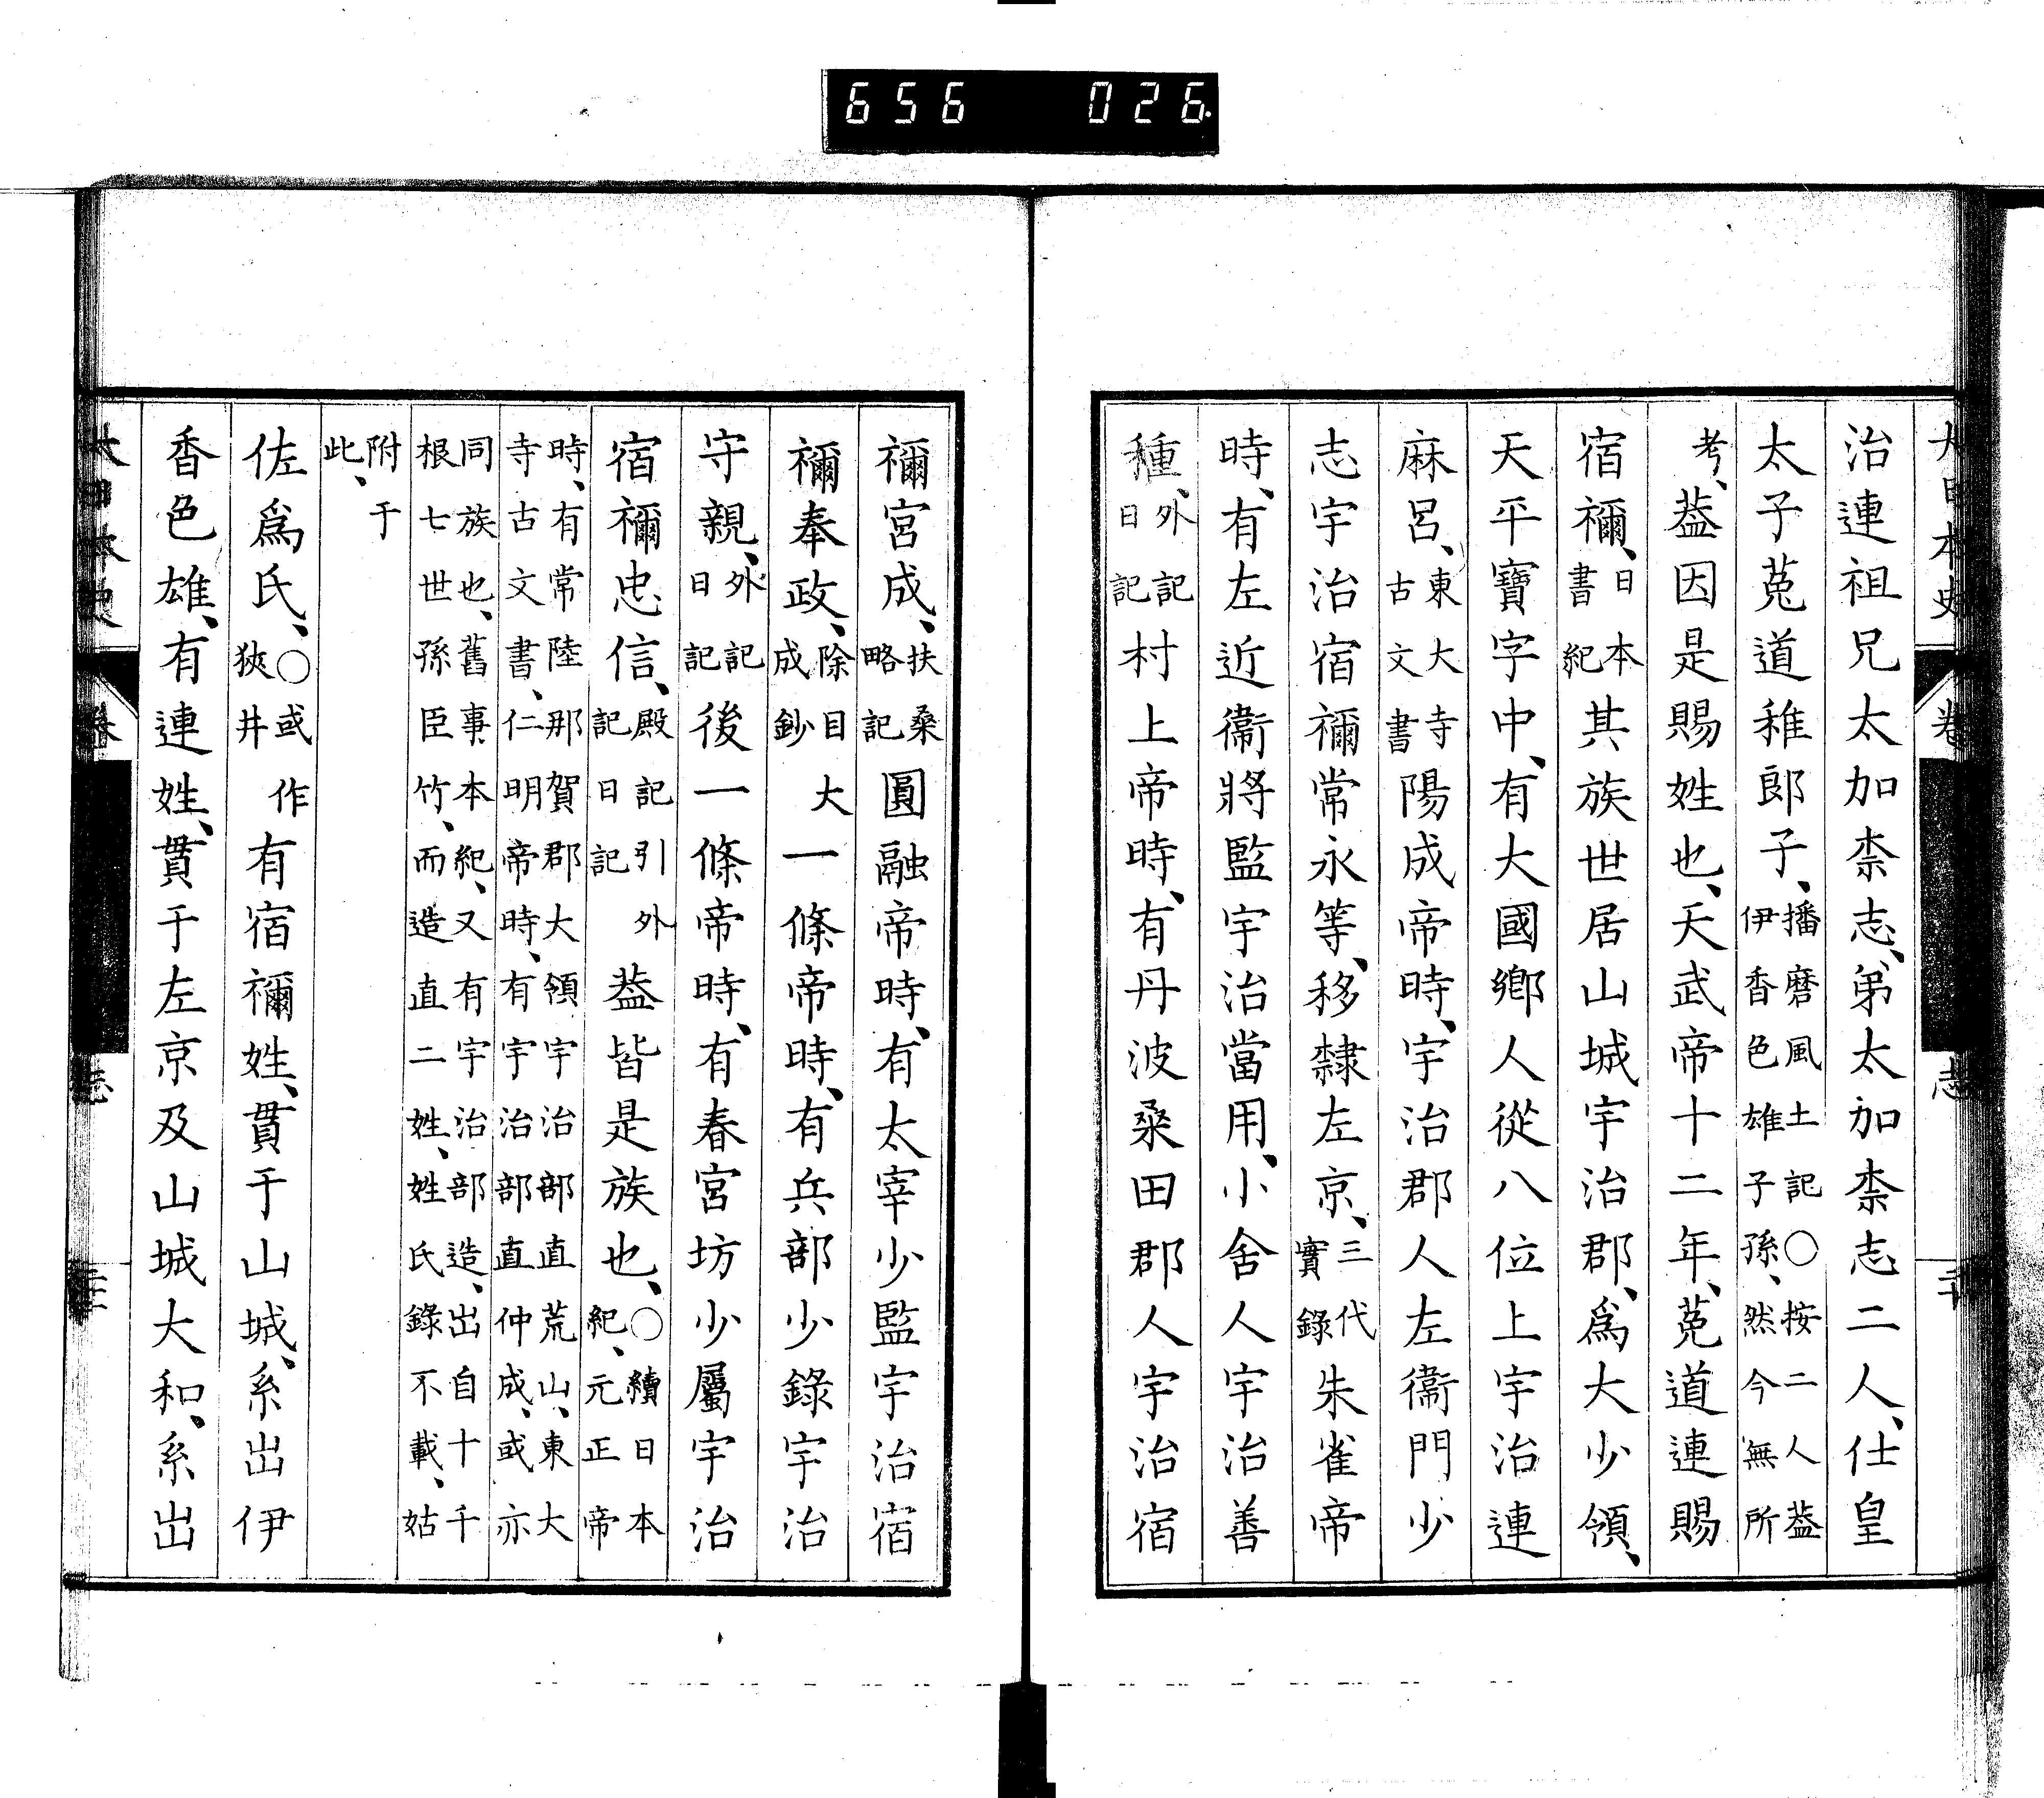 656 026
大日本史 卷 志
治連祖兄太加柰志、弟太加柰志二人、仕皇
太子菟道稚郎子、播磨風土記○按二人葢伊香色雄子孫、然今無所
考、葢因是賜姓也、天武帝十二年、菟道連賜
宿禰、日本書紀其族世居山城宇治郡、爲大少領、
天平寶字中、有大國鄕人從八位上宇治連
麻呂、東大寺古文書陽成帝時、宇治郡人左衞門少
志宇治宿禰常永等、移隸左京、三代實錄朱雀帝
時、有左近衞將監宇治當用、小舍人宇治善
種、外記日記村上帝時、有丹波桑田郡人宇治宿
禰宮成、扶桑略記圓融帝時、有太宰少監宇治宿
禰奉政、除目大成鈔一條帝時、有兵部少錄宇治
守親、外記日記後一條帝時、有春宮坊少屬宇治
宿禰忠信、殿記引外記日記葢皆是族也、○續日本紀、元正帝
時、有常陸那賀郡大領宇治部直荒山、東大寺古文書、仁明帝時、有宇治部直仲成、或亦
同族也、舊事本紀、又有宇治部造、出自十千根七世孫臣竹、而造直二姓、姓氏錄不載、姑
附于此、
佐爲氏、○或作狹井有宿禰姓、貫于山城、系出伊
香色雄、有連姓、貫于左京及山城大和、系出
大日本史 卷 志